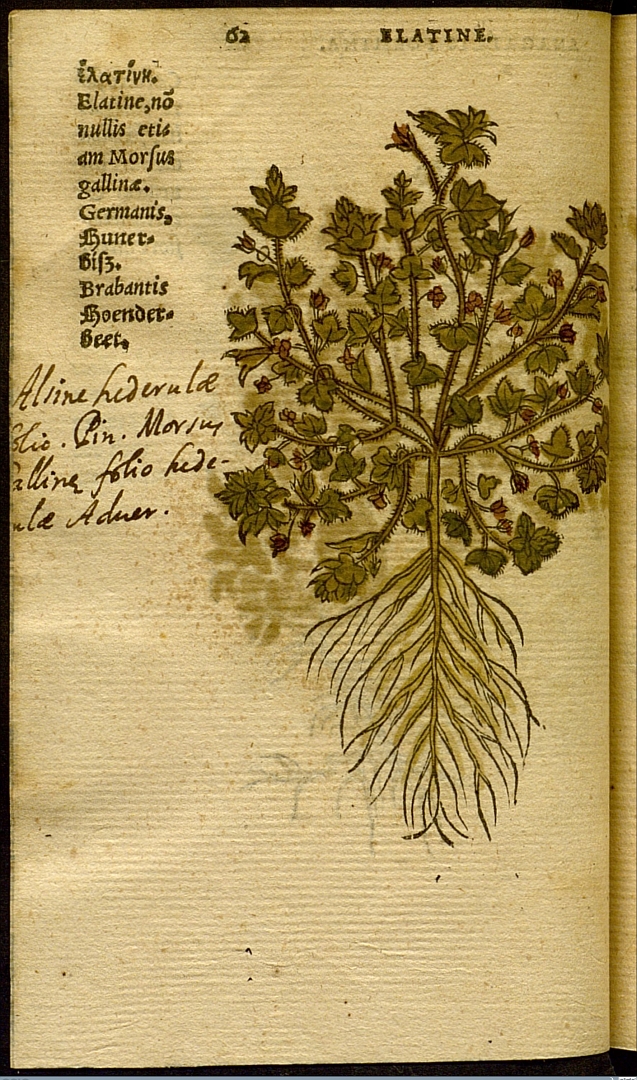 62 ELATINE.
ἐλατίνη.
Elatine, nõ
nullis eti⸗
am Morſus
gallinæ.
Germanis,
Huner⸗
biſz.
Brabantis
Hoender⸗
beet.
Alsine hederulæ
folio. Pin. Morsus
gallinę folio hede-
rulæ Aduer.